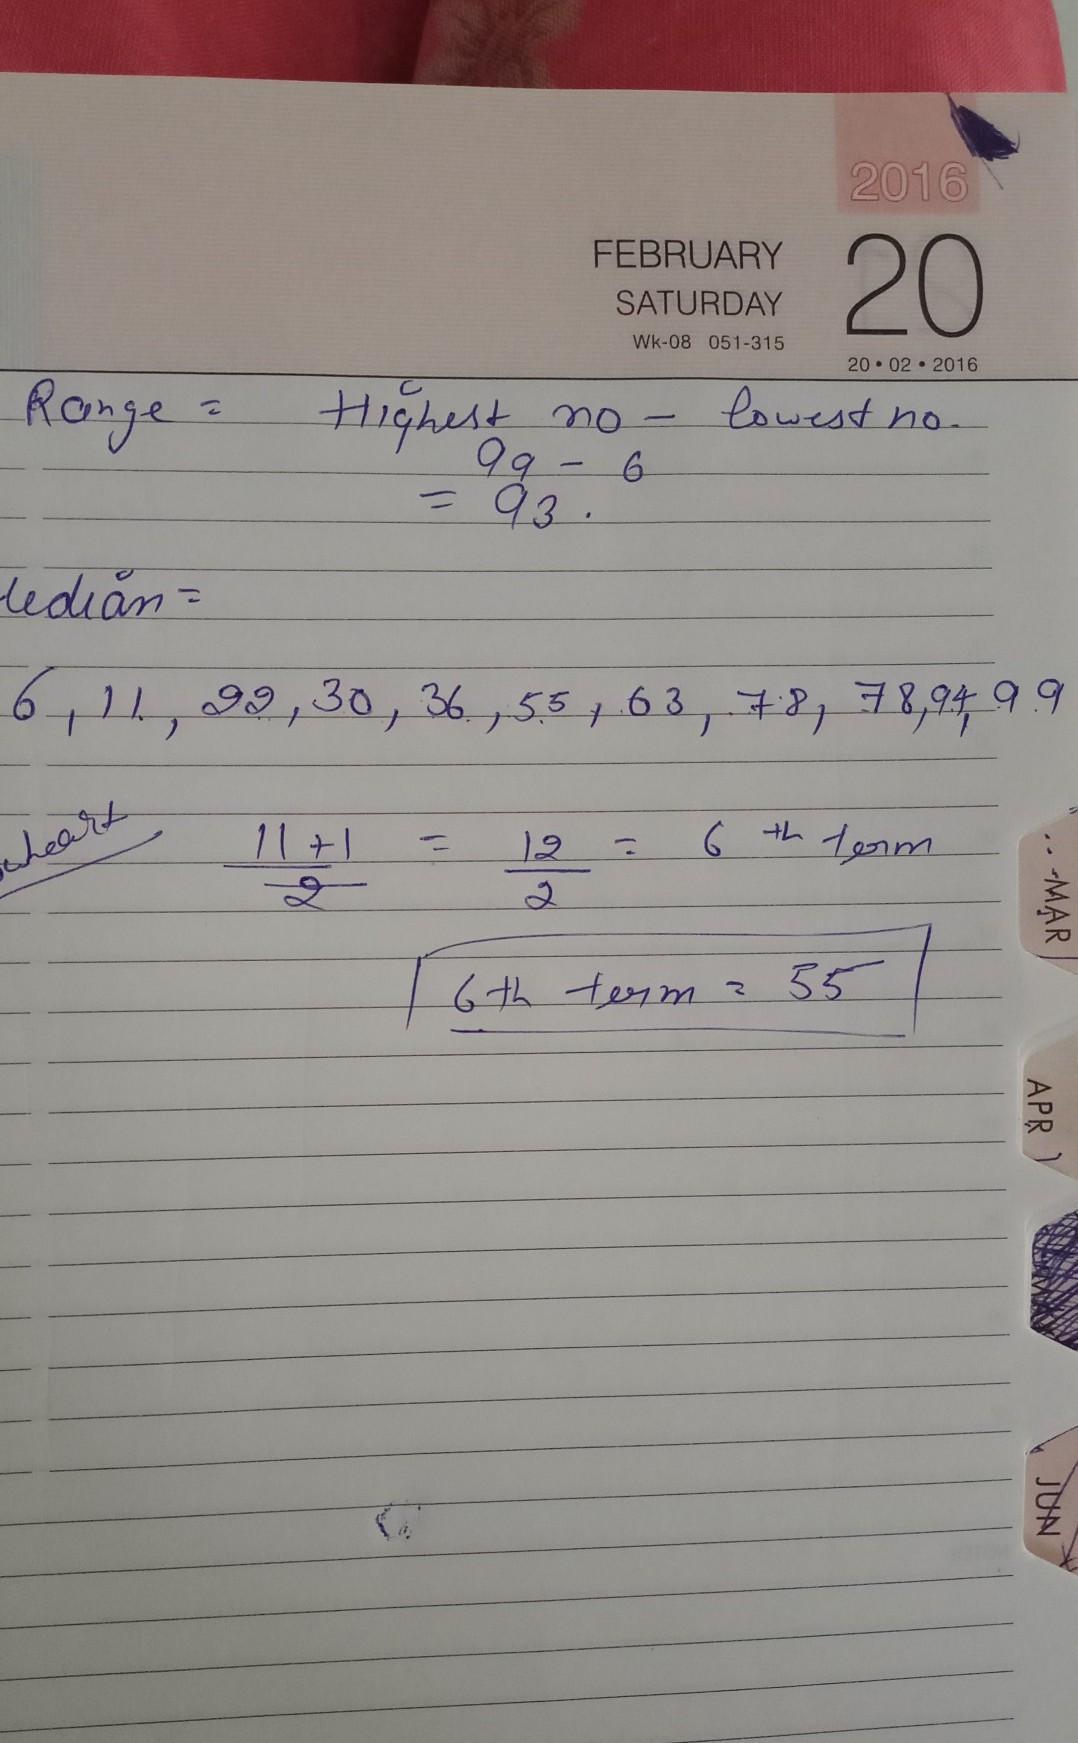 2016
FEBRUARY 20
SATURDAY
Wk-08 051-315
20 • 02 • 2016
Range = Highest no - lowest no.
99 - 6
= 93.
Median =
6, 11, 22, 30, 36, 55, 63, 78, 78, 94, 99
11+1/2 = 12/2 = 6th term
6th term = 55
MAR
APR
JUN